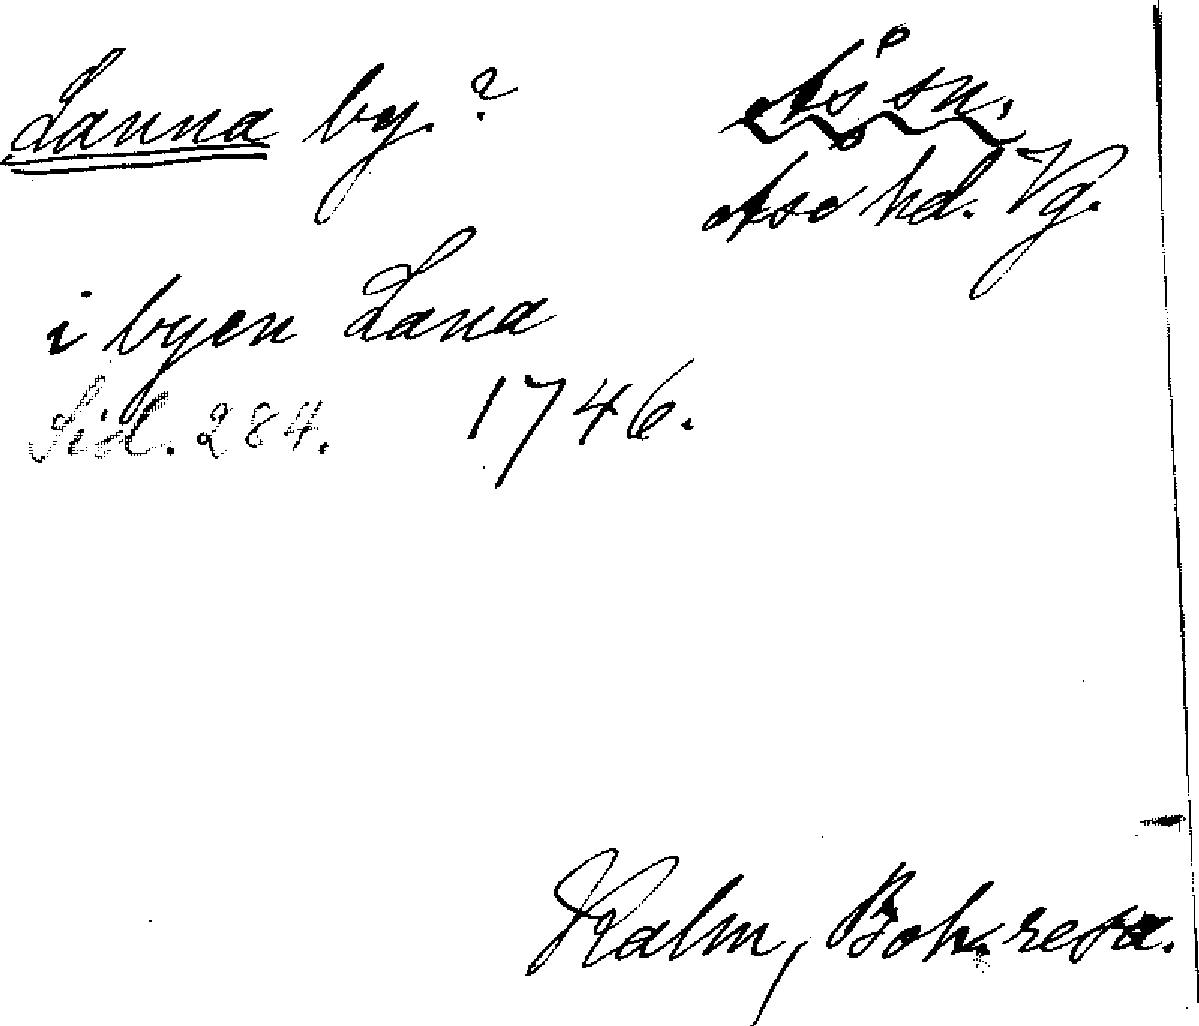 Lanna by. ?
Ås sn.
Åse hd. Vg.
i byen Lana
Sid. 284. 1746.
Kalm, Boh. resa.